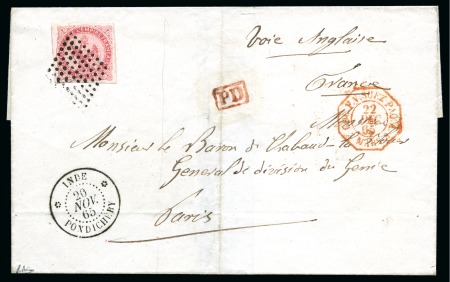 Voie Anglaise
France
PD
22
Monsieur le Baron de Chabaud la Tour
General de division du Genie
Paris
INDE
20
NOV.
65
PONDICHERY